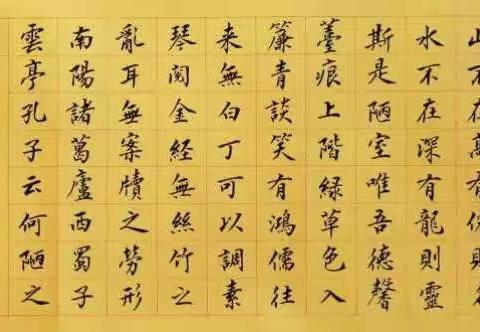 山不在高有仙則名
水不在深有龍則靈
斯是陋室唯吾德馨
薹痕上階緑草色入
簾青談笑有鴻儒往
来無白丁可以調素
琴閱金經無絲竹之
亂耳無案牘之勞形
南陽諸葛廬西蜀子
雲亭孔子云何陋之